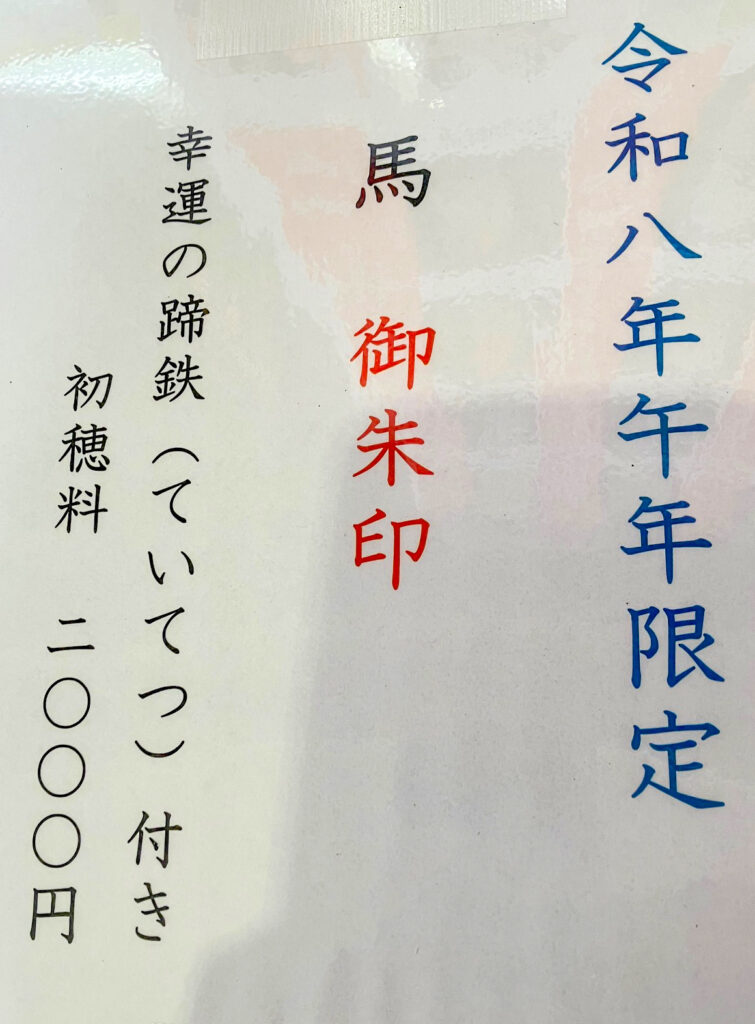 令和八年午年限定
馬　御朱印
幸運の蹄鉄（ていてつ）付き
初穂料　二〇〇〇円